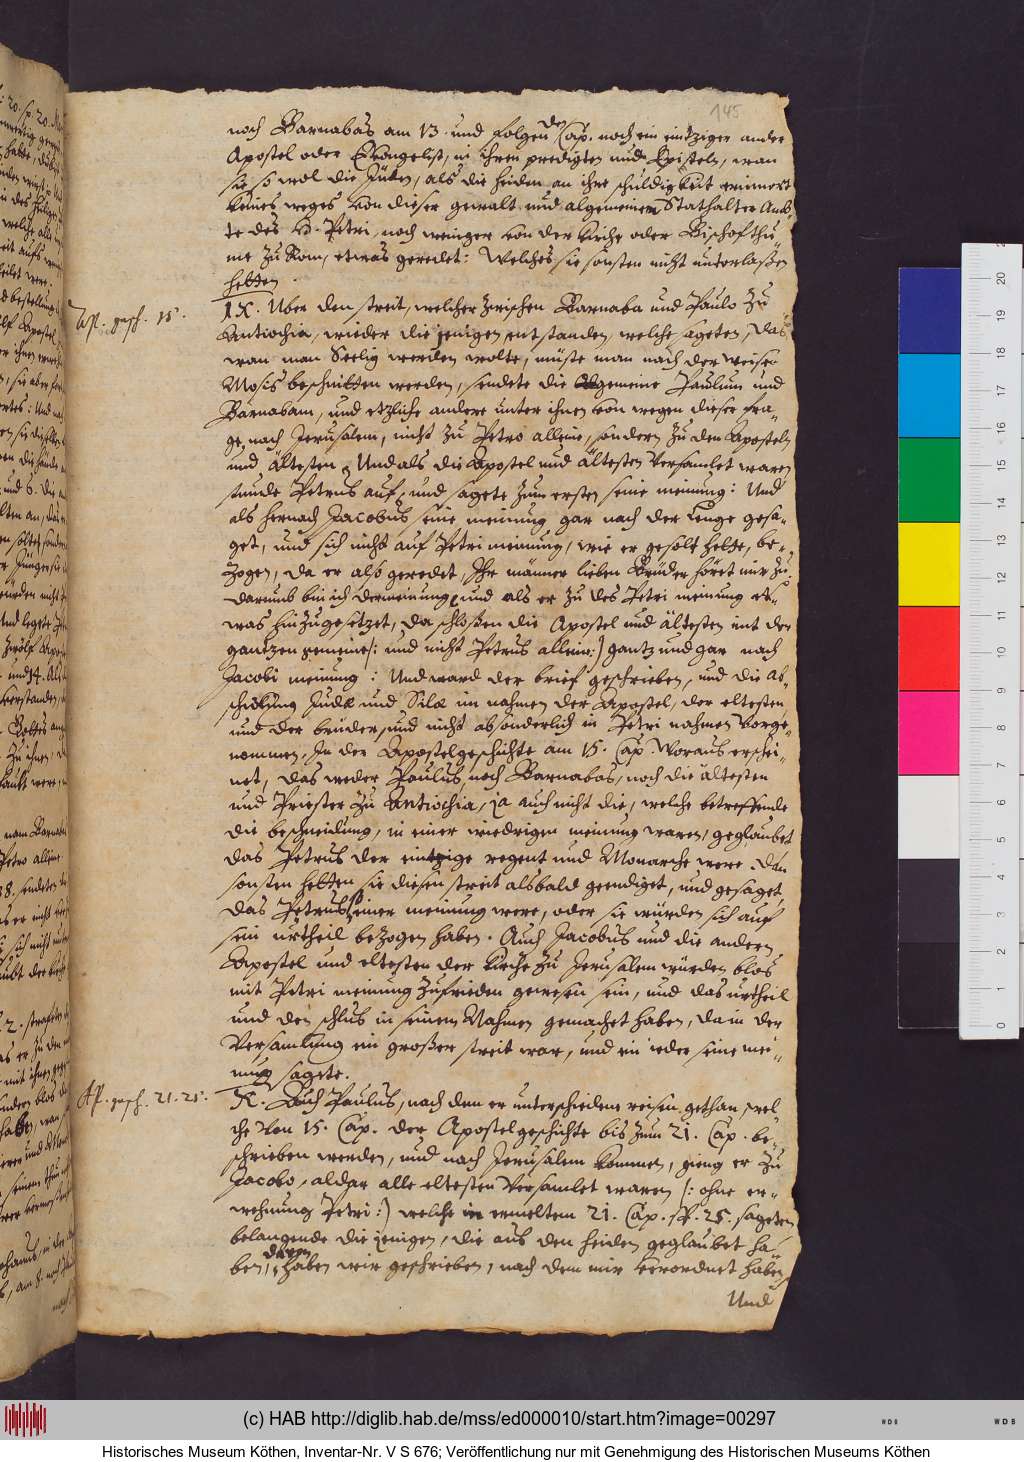 145
noch Barnabas am 13. und folgenden Cap. noch ein eintziger ander
Apostel oder Evangelist, in ihren predigten und Episteln, wan
sie so wol die Jüden, als die heiden an ihre schuldigkeit erinnert
keines weges von dieser gewalt und algemeinen Stathalter Amb-
te des S. Petri, noch weniger von der Kirche oder Bischofthu-
me zu Rom, etwas geredet: Welches sie sonsten nicht unterlaßen
hetten.
Ap. gesch. 15.
IX. Uber den streit, welcher zwischen Barnaba und Paulo zu
Antiochia, wieder die jenigen entstanden, welche sageten, das
wan man Seelig werden wolte, müste man nach der weise
Mosis beschnitten werden, sendete die gemeine Paulum und
Barnabam, und etzliche andere unter ihnen von wegen dieser fra-
ge nach Jerusalem, nicht zu Petro alleine, sondern zu den Aposteln
und ältesten. Und als die Apostel und ältesten versamlet waren
stunde Petrus auf, und sagete zum ersten seine meinung: Und
als hernach Jacobus seine meinung gar nach der lenge gesa-
get, und sich nicht auf Petri meinung, wie er gesolt hette, be-
zogen, da er also geredet, Ihr männer lieben Brüder höret mir zu
darumb bin ich der meinung, und als er zu des Petri meinung et-
was hinzugesetzet, da schloßen die Apostel und ältesten mit der
gantzen gemeine (: und nicht Petrus allein:) gantz und gar nach
Jacobi meinung: Und ward der brief geschrieben, und die ab-
schickung Judæ und Silæ im nahmen der Apostel, der eltesten
und der brüder, und nicht absonderlich in Petri nahmen vorge-
nommen, In der Apostelgeschichte am 15. Cap. Woraus erschei-
net, das weder Paulus noch Barnabas, noch die ältesten
und Priester zu Antiochia, ja auch nicht die, welche betreffende
die beschneidung, in einer wiedrigen meinung waren, geglaubet
das Petrus der eintzige regent und Monarche were. Dan
sonsten hetten sie diesen streit alsbald geendiget, und gesaget,
das Petrus einer meinung were, oder sie würden sich auf
sein urtheil bezogen haben. Auch Jacobus und die andern
Apostel und eltesten der Kirche zu Jerusalem würden blos
mit Petri meinung zufrieden gewesen sein, und das urtheil
und den schlus in seinem Nahmen gemachet haben, da in der
Versamlung ein großer streit war, und ein ieder seine mei-
nung sagete.
Ap. gesch. 21. 25.
X. Auch Paulus, nach dem er unterschiedene reisen gethan, wel-
che von 15. Cap. der Apostelgeschichte bis zum 21. Cap. be-
schrieben werden, und nach Jerusalem kommen, gieng er zu
Jacobo, aldar alle eltesten versamlet waren (: ohne er-
wehnung Petri:) welche in ermeltem 21. Cap. . 25. sageten
belangende die jenigen, die aus den heiden geglaubet ha-
ben, davon haben wir geschrieben, nach dem wir verordnet haben
Und
(c) HAB http://diglib.hab.de/mss/ed000010/start.htm?image=00297
Historisches Museum Köthen, Inventar-Nr. V S 676; Veröffentlichung nur mit Genehmigung des Historischen Museums Köthen